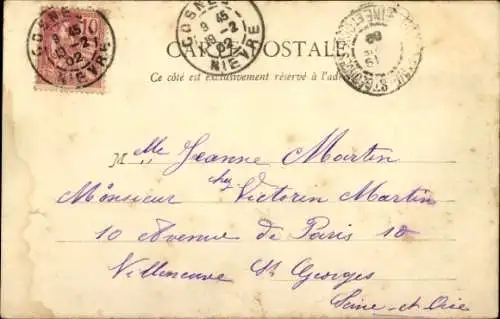 COSNE
9 45
18 -2
02
NIÈVRE
10
COSNE
9 45
18 -2
02
NIÈVRE
CARTE POSTALE
Ce côté est exclusivement réservé à l'adresse
M Elle Jeanne Martin
chez
Monsieur Victorin Martin
10 Avenue de Paris 10
Villeneuve St Georges
Seine-et-Oise